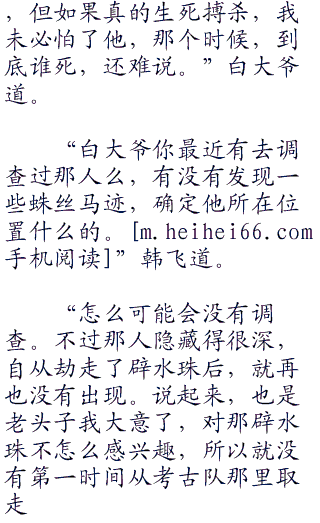 ，但如果真的生死搏杀，我
未必怕了他，那个时候，到
底谁死，还难说。”白大爷
道。
“白大爷你最近有去调
查过那人么，有没有发现一
些蛛丝马迹，确定他所在位
置什么的。[m.heihei66.com
手机阅读]”韩飞道。
“怎么可能会没有调
查。不过那人隐藏得很深，
自从劫走了辟水珠后，就再
也没有出现。说起来，也是
老头子我大意了，对那辟水
珠不怎么感兴趣，所以就没
有第一时间从考古队那里取
走